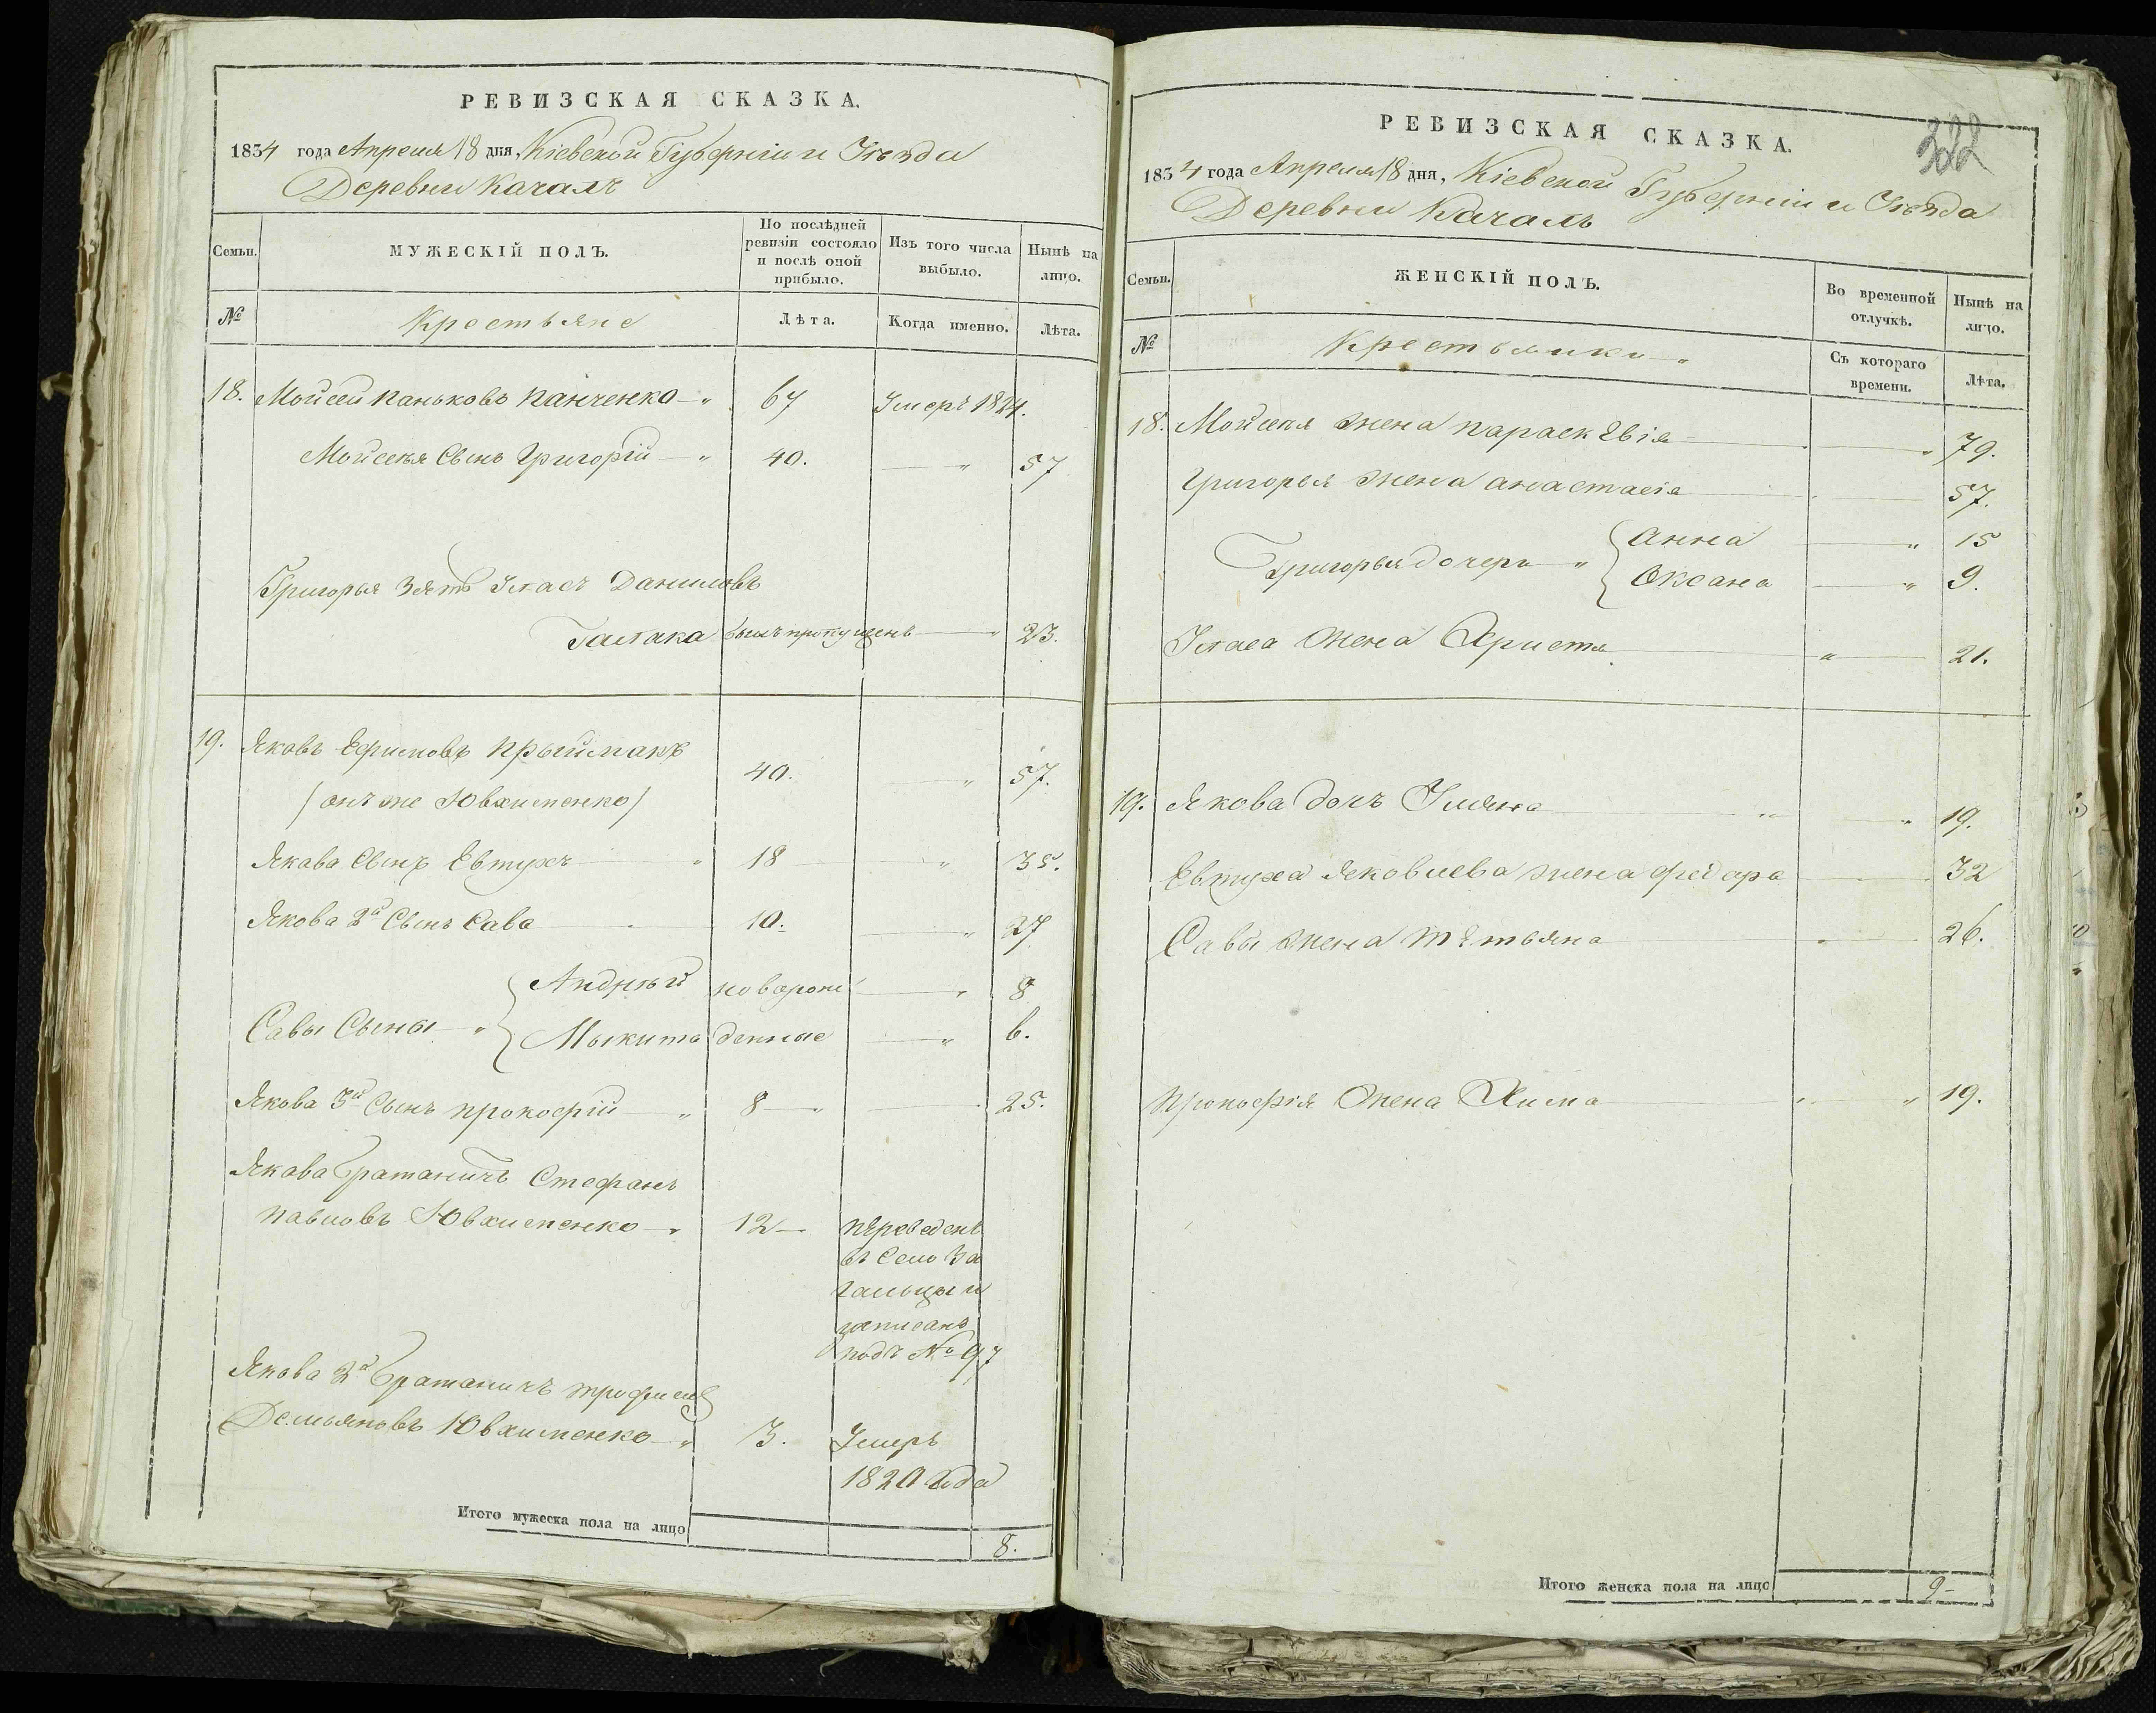 РЕВИЗСКАЯ СКАЗКА.
1834 года Апреля 18 дня, Кіевской Губерніи и Уѣзда
Деревни Качалъ
Семьи.
МУЖЕСКІЙ ПОЛЪ.
По послѣдней ревизіи состояло и послѣ оной прибыло.
Изъ того числа выбыло.
Нынѣ на лицо.
№
Крестьяне
Лѣта.
Когда именно.
Лѣта.
18. Мойсей Паньковъ Панченко 67 Умеръ 1824.
Мойсея Сынъ Григорій 40. 57
Григорья Зять Власъ Даниловъ
Галака былъ пропущенъ 23.
19. Яковъ Ефимовъ Прыймакъ 40. 57.
/онъ же Ювхименко/
Якова Сынъ Евтухъ 18 35.
Якова 2й Сынъ Сава 10. 27
Савы Сыны
Андрѣй новорож 8
Мыкита денные 6.
Якова 3й Сынъ Прокофій 8 25.
Якова Братаничъ Стефанъ
Павловъ Ювхименко 12 переведенъ
въ Село За
гальцы и
записанъ
подъ № 97
Якова 2й Братаничъ Трофимъ
Демьяновъ Ювхименко 3. Умеръ
1820 года
Итого мужеска пола на лицо 8.
322
РЕВИЗСКАЯ СКАЗКА.
1834 года Апреля 18 дня, Кіевской Губерніи и Уѣзда
Деревни Качалъ
Семьи.
ЖЕНСКІЙ ПОЛЪ.
Во временной отлучкѣ.
Нынѣ на лицо.
№
Крестьянки
Съ котораго времени.
Лѣта.
18. Мойсея жена Параскевія 79.
Григорья жена Анастасія 57.
Григорья дочери
Анна 15
Оксана 9.
Власа жена Христя 21.
19. Якова дочь Уляна 19.
Евтуха Яковлева жена Федора 32
Савы жена Тетьяна 26.
Прокофія жена Хима 19.
Итого женска пола на лицо 9